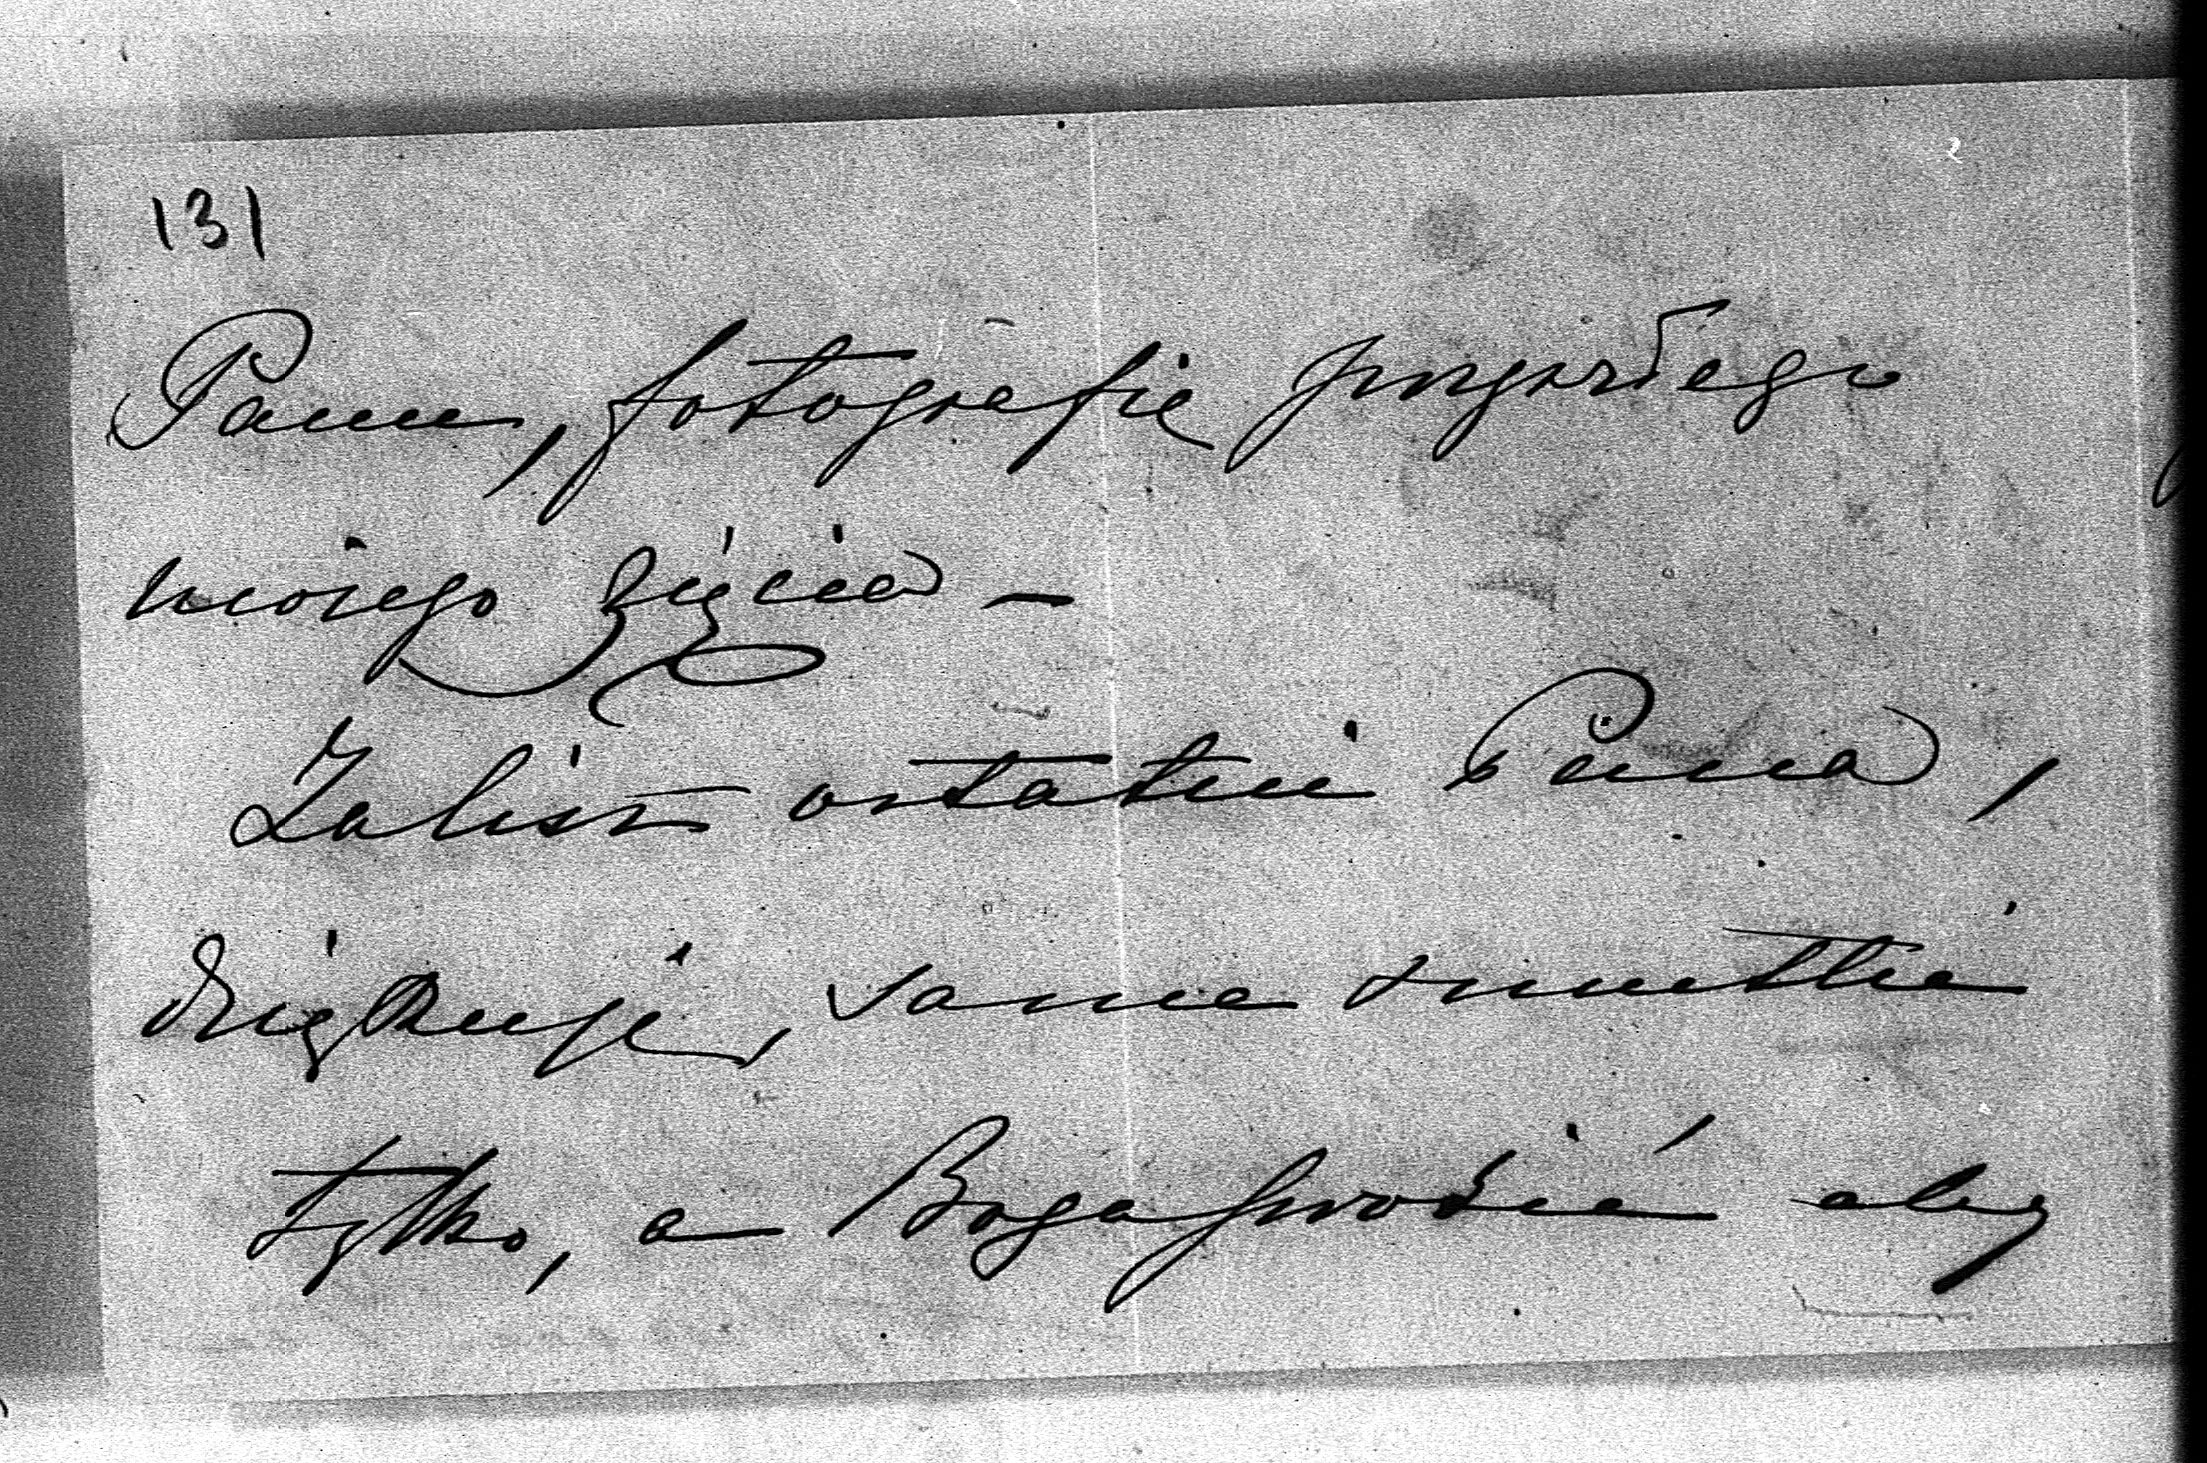 131
Panu, fotografię przyszłego
mojego zięcia –
Za list ostatni Pana,
dziękuję, same smutki
tylko, a Boga prosić aby